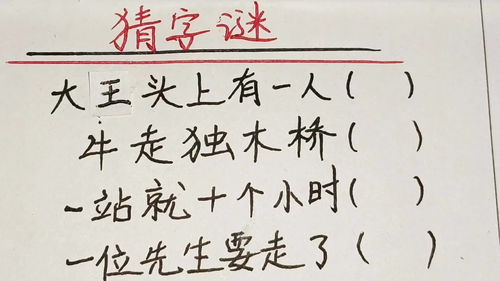 猜字谜
大王头上有一人( )
牛走独木桥( )
一站就十个小时( )
一位先生要走了( )